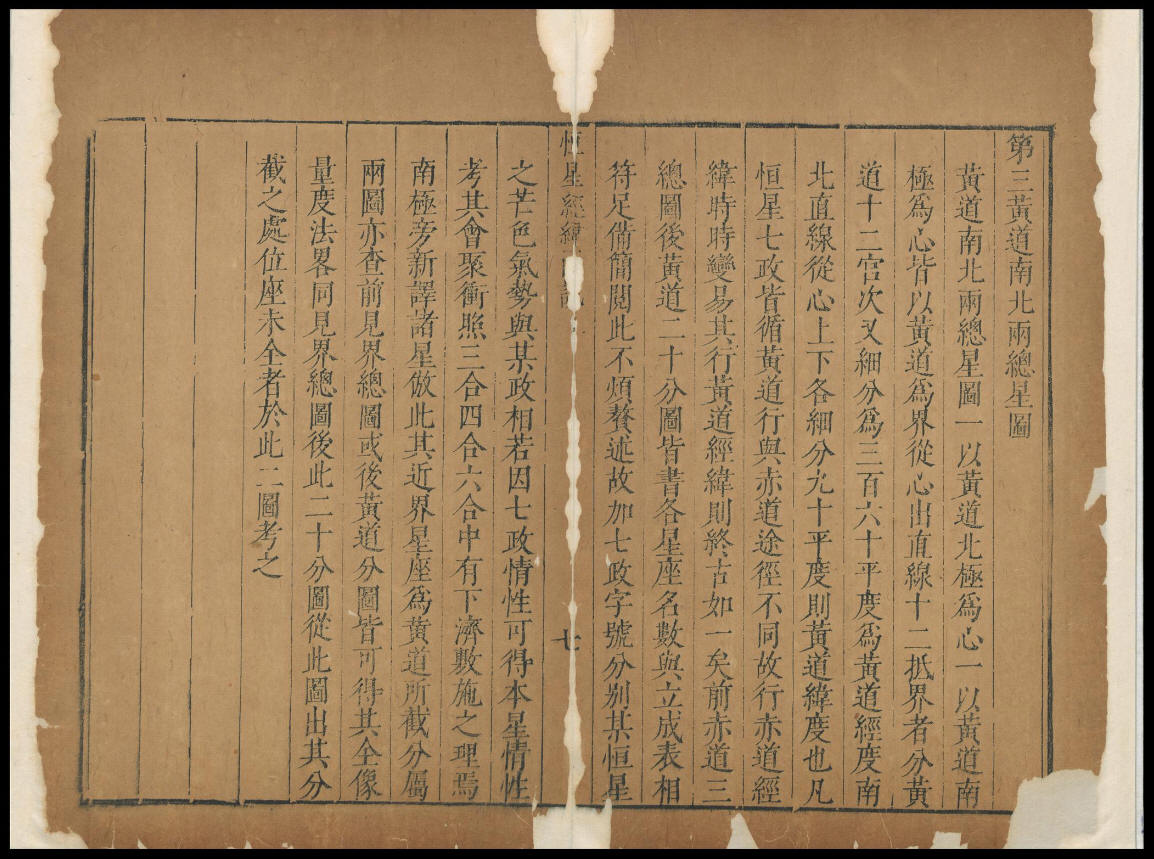 第三黃道南北兩總星圖
黃道南北兩總星圖一以黃道北極爲心一以黃道南
極爲心皆以黃道爲界從心出直線十二抵界者分黃
道十二宮次又細分爲三百六十平度爲黃道經度南
北直線從心上下各細分九十平度則黃道緯度也凡
恒星七政皆循黃道行與赤道途徑不同故行赤道經
緯時時變易其行黃道經緯則終古如一矣前赤道三
總圖後黃道二十分圖皆書各星座名數與立成表相
符足備簡閱此不煩贅述故加七政字號分別某恒星
恒星經緯圖說 七
之芒色氣勢與某政相若因七政情性可得本星情性
考其會聚衝照三合四合六合中有下濟敷施之理焉
南極旁新譯諸星倣此其近界星座爲黃道所截分屬
兩圖亦查前見界總圖或後黃道分圖皆可得其全像
量度法畧同見界總圖後此二十分圖從此圖出其分
截之處位座未全者於此二圖考之